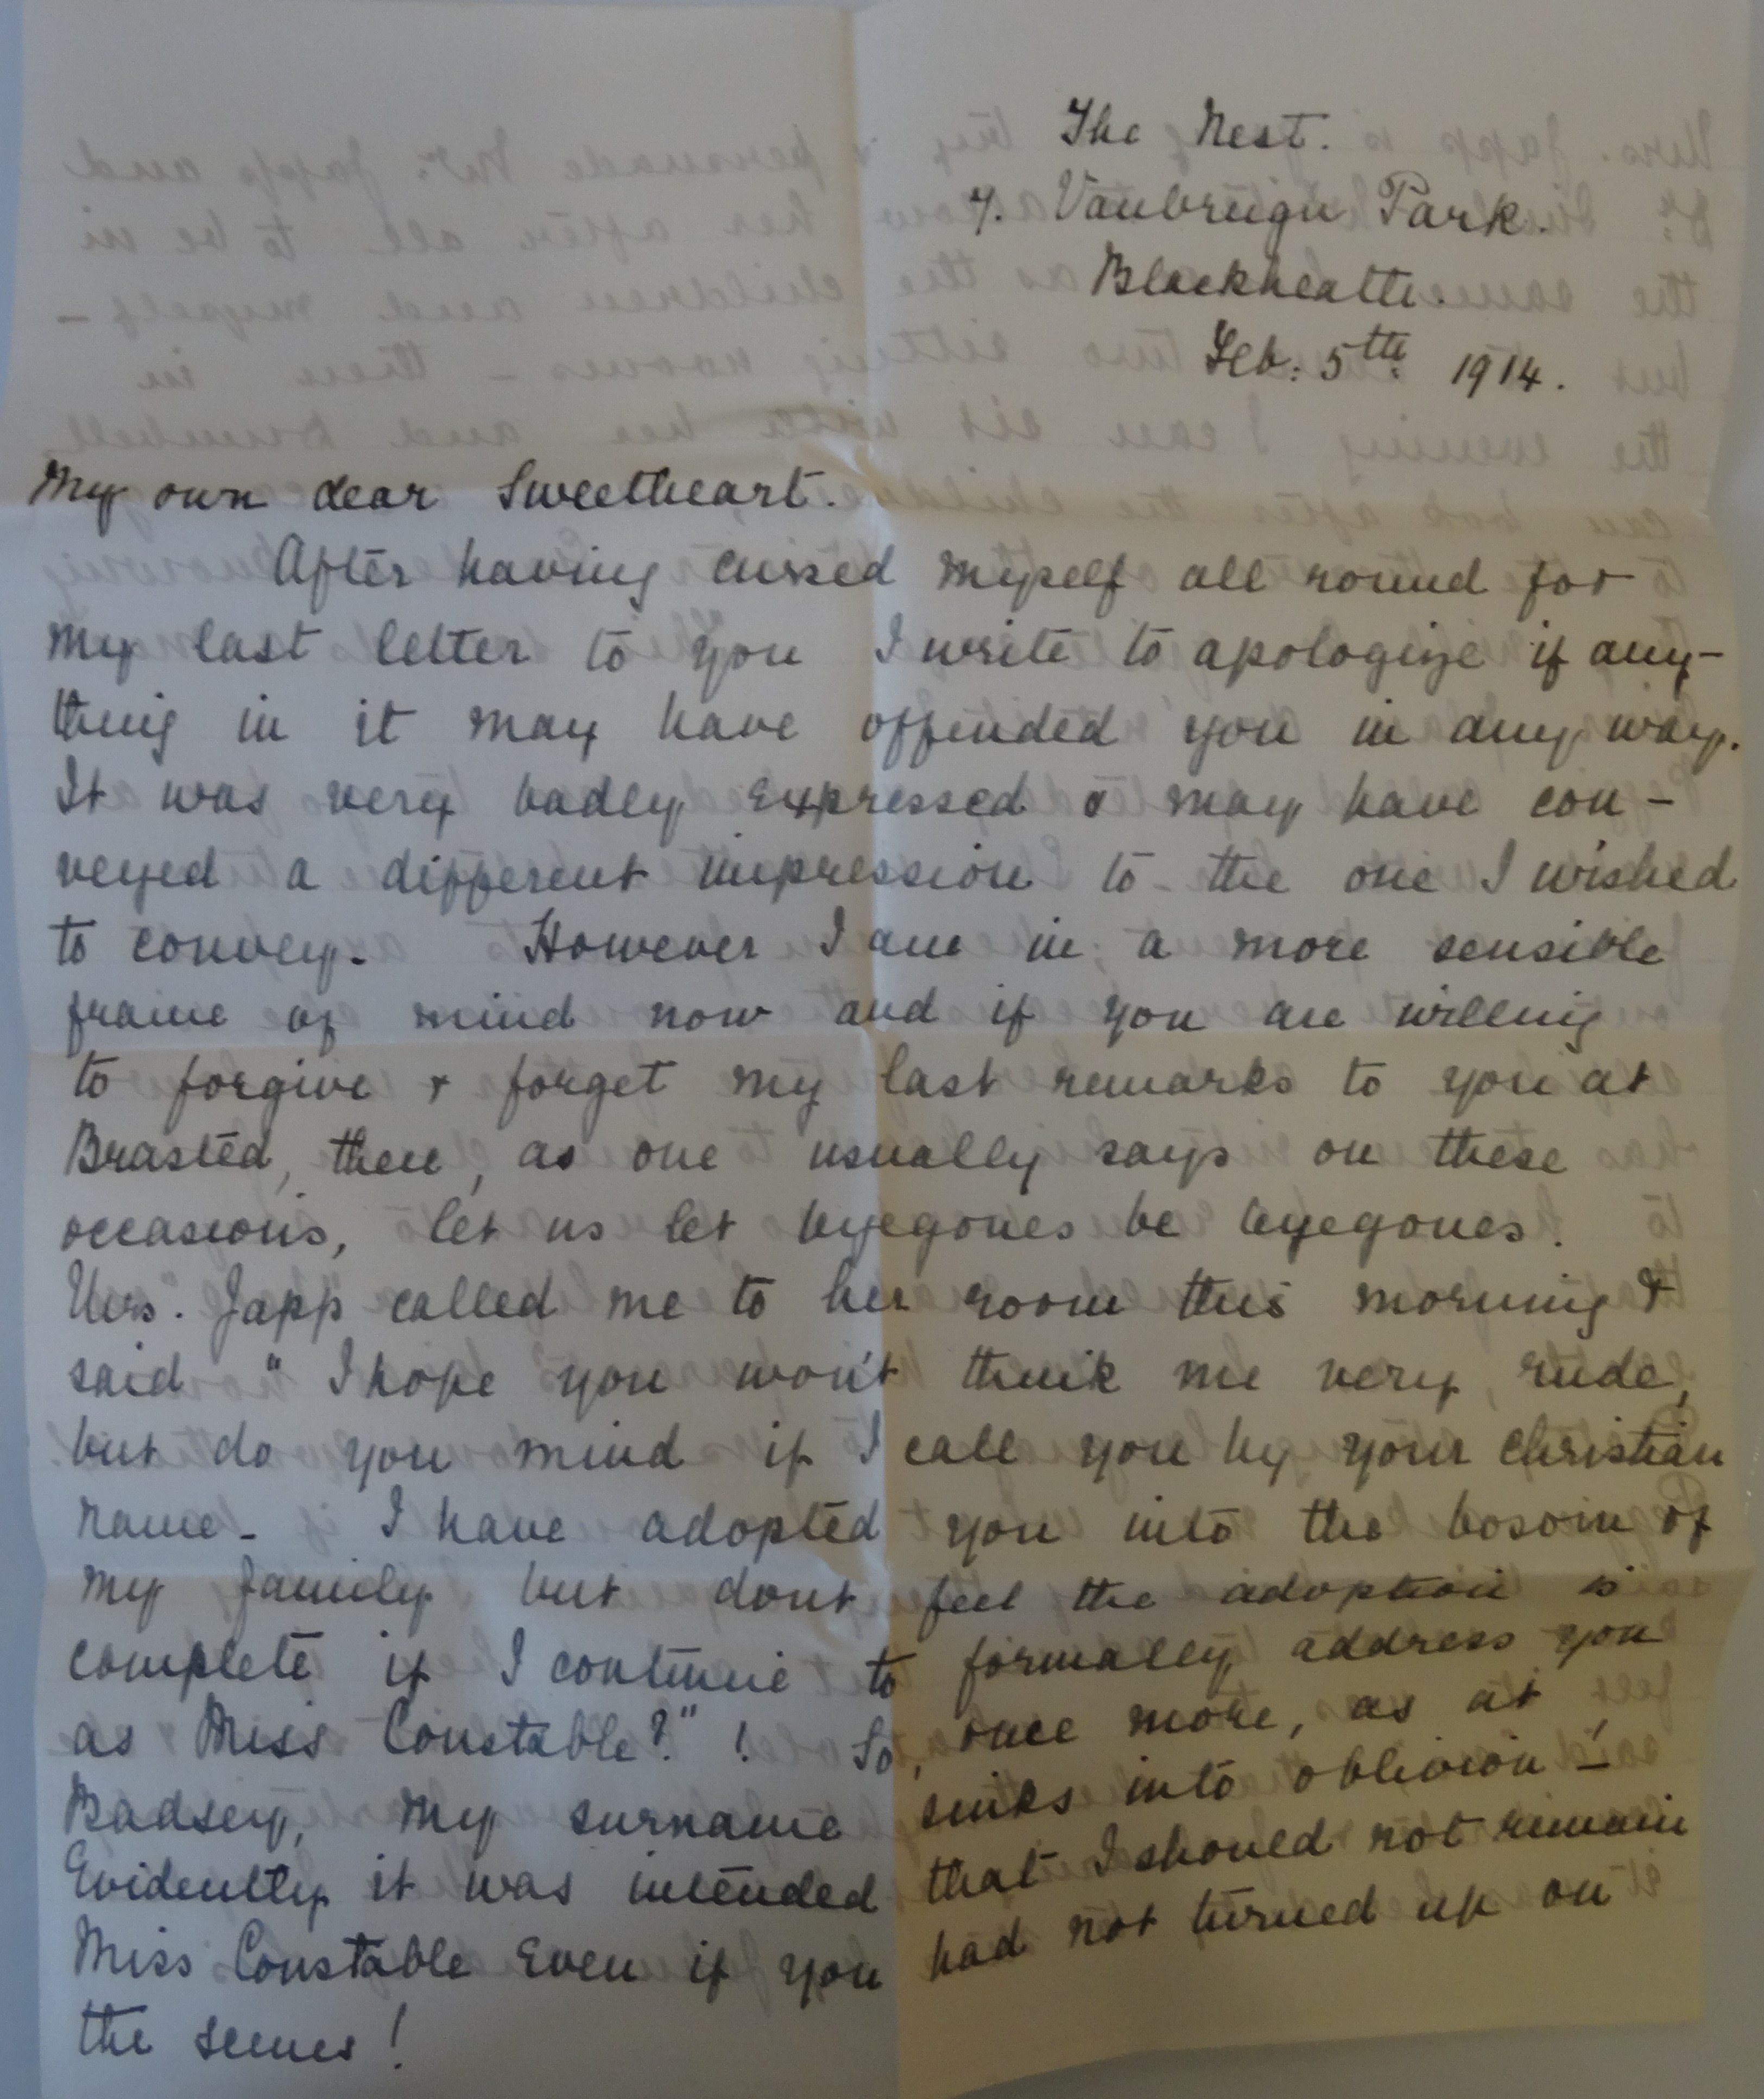 The Nest.
7. Vanbrugh Park.
Blackheath.
Feb: 5th. 1914.
My own dear Sweetheart.
After having cussed myself all round for
my last letter to you I write to apologize if any-
thing in it may have offended you in any way.
It was very badly expressed & may have con-
veyed a different impression to the one I wished
to convey. However I am in a more sensible
frame of mind now and if you are willing
to forgive & forget my last remarks to you at
Brasted, then, as one usually says on these
occasions, let us let byegones be byegones.
Mrs. Japp called me to her room this morning &
said "I hope you won't think me very rude,
but do you mind if I call you by your Christian
name - I have adopted you into the bosom of
my family but dont feel the adoption is
complete if I continue to formally address you
as Miss Constable?"! So, once more, as at
Badsey, my surname sinks into oblivion!-
Evidently it was intended that I should not remain
Miss Constable even if you had not turned up on
the scenes!